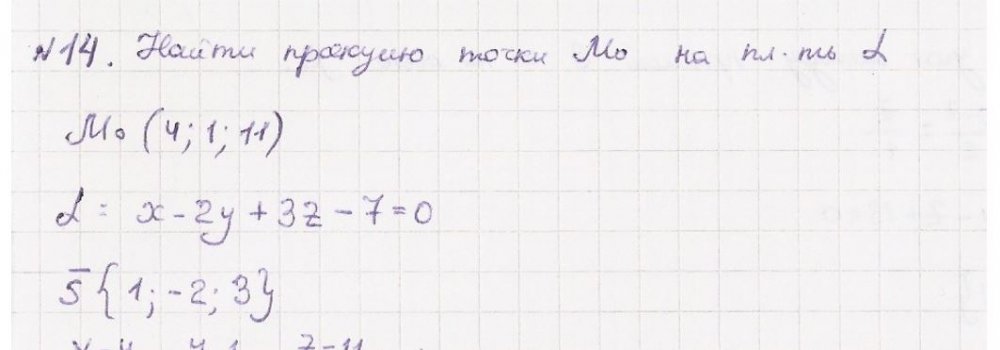 №14. Найти проекцию точки M₀ на пл-ть α
M₀ (4; 1; 11)
α: x - 2y + 3z - 7 = 0
s̄ {1; -2; 3}